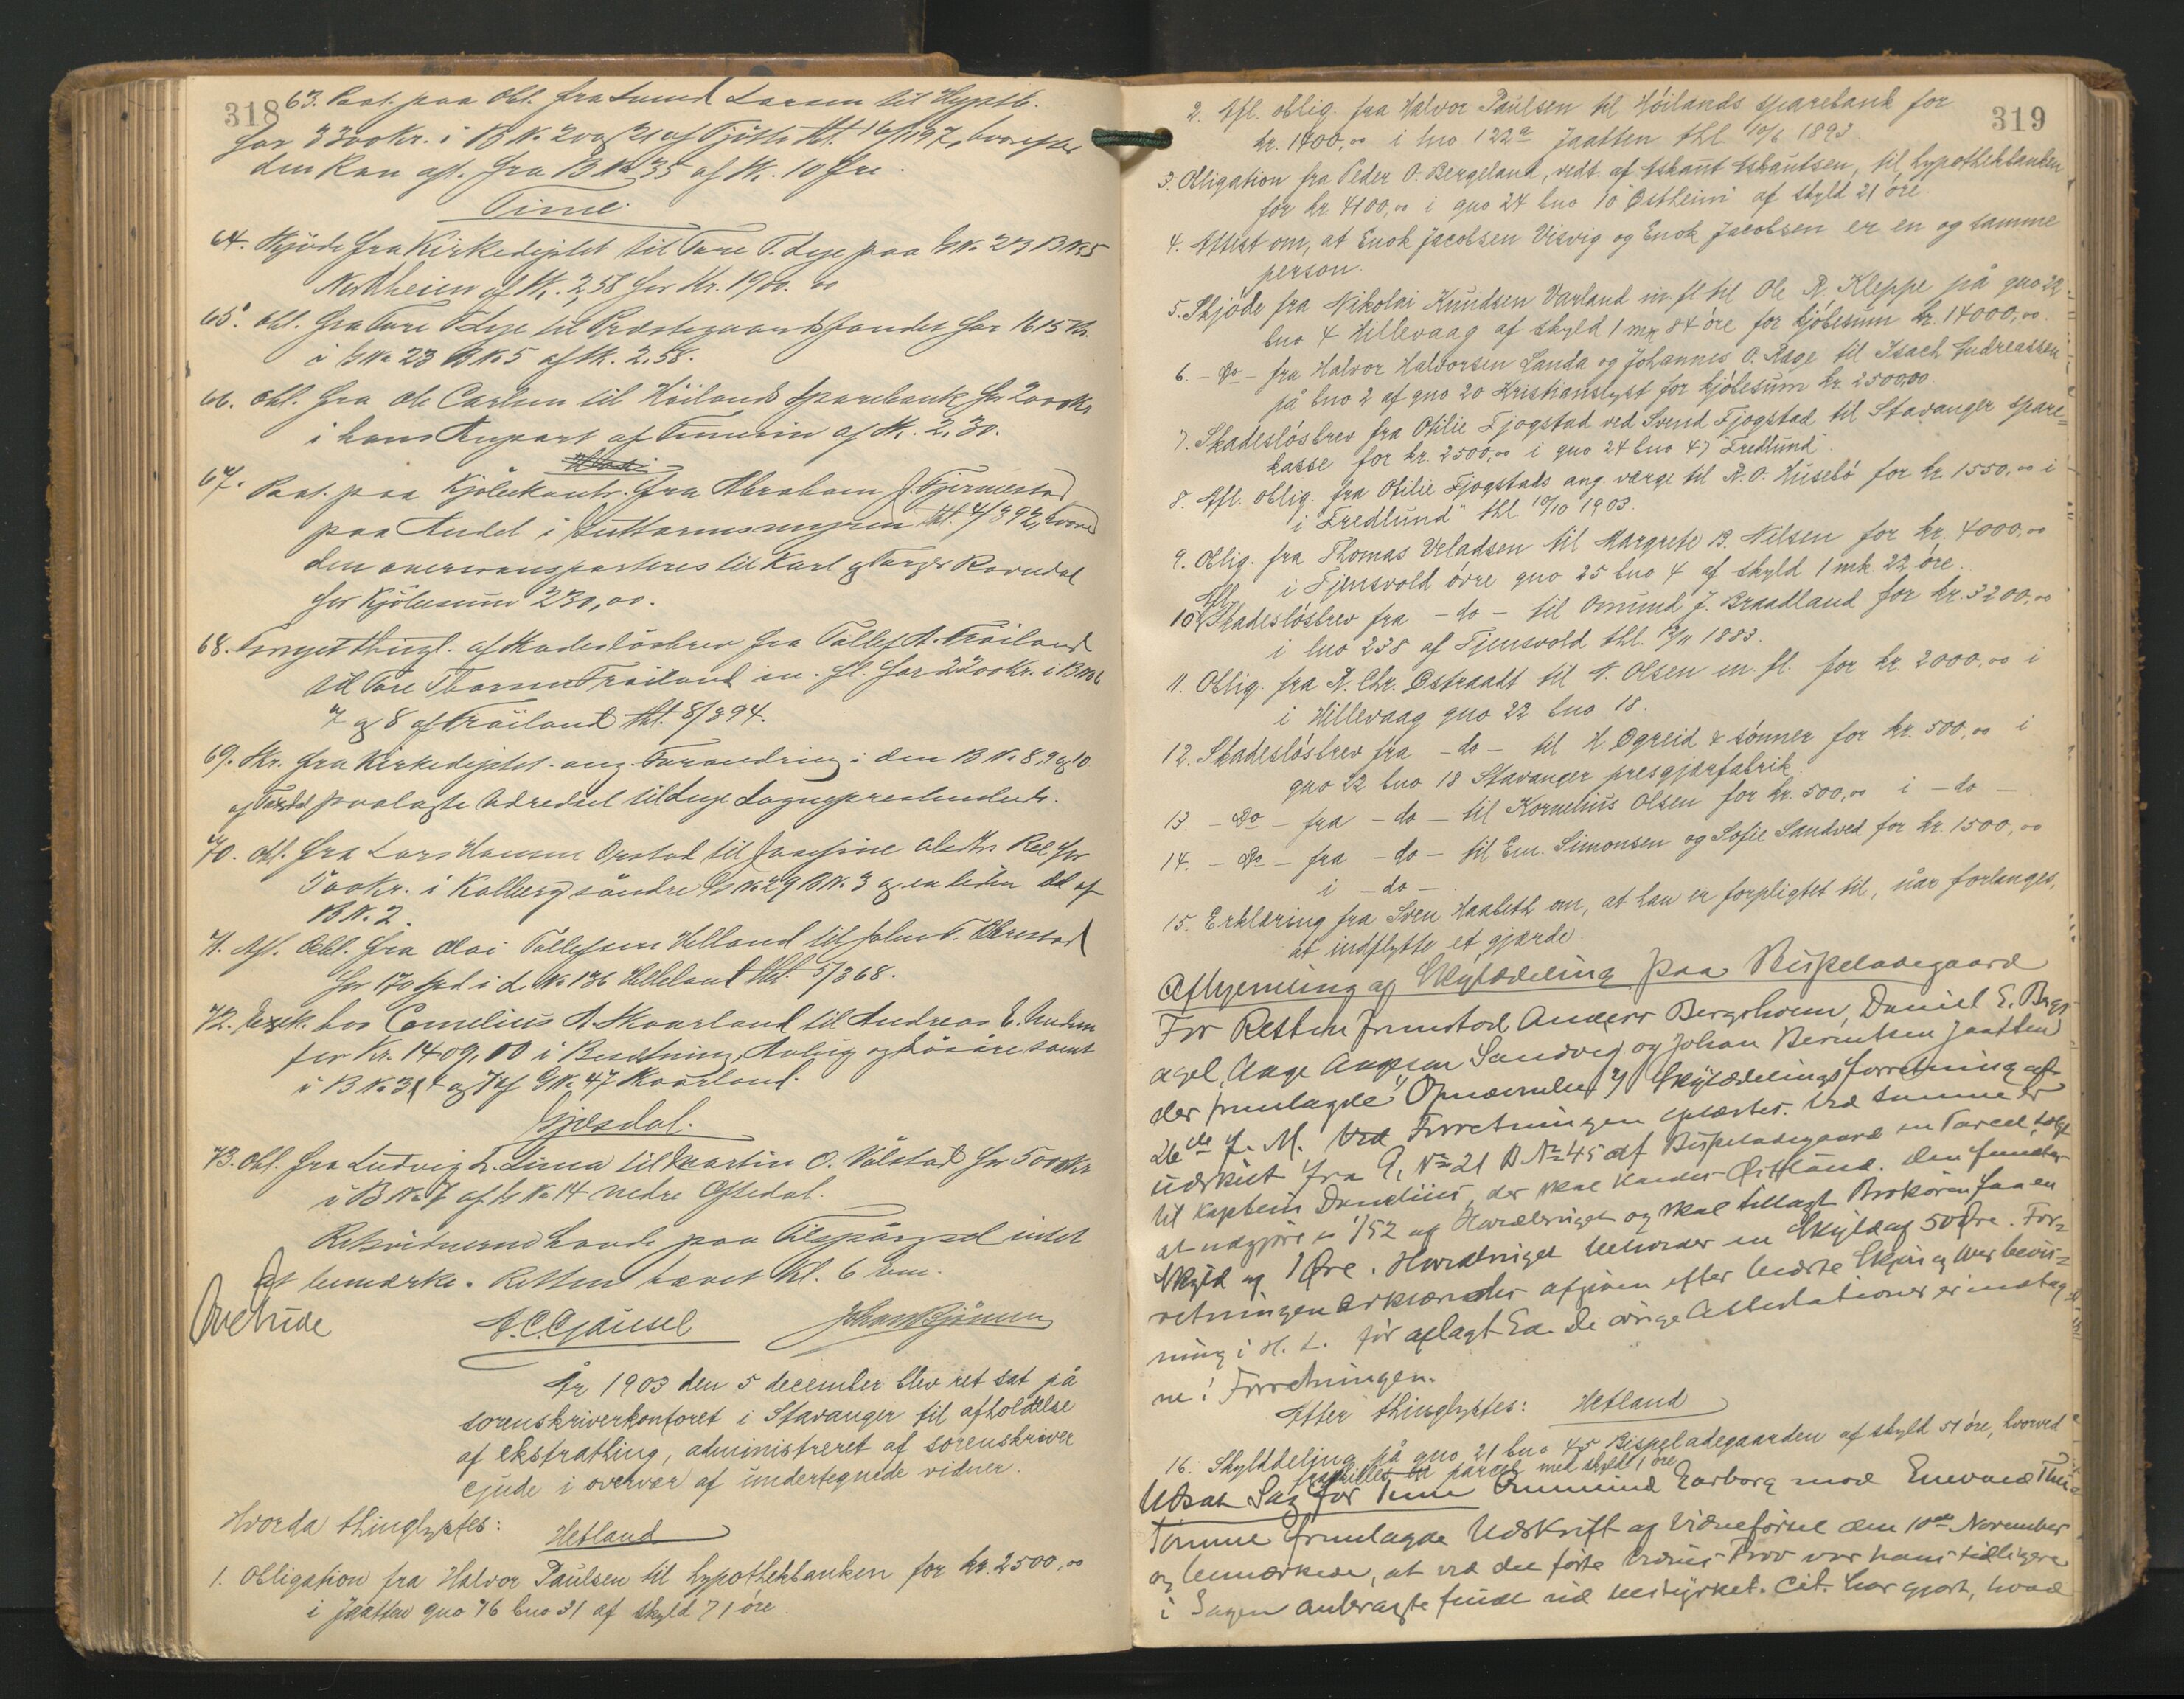 318
63. Paat. paa Obl. fra Svend Larsen til Hypotb.
for 3200 Kr. i B No 20 og 21 af Tjötta tht. 16/1197, hvorefter
den kan afl. fra B No 35 af Sk. 10 Øre.
Time
64. Skjöde fra Kirkedeptet til Tore T. Lye paa G No 23 B No 5
Nordheim af Sk. 2,58 for Kr. 1900.00
65. Obl. fra Tore T Lye til Præstegaardsfondet for 1615 Kr.
i G No 23 B No 5 af Sk. 2.58.
66. Obl. fra Ole Carlsen til Höilands Sparebank for 200 Kr
i hans Anpart af af Sk. 2,30.
67. Paat. paa Kjöbekontr. fra Abraham J. Fjermestad
paa Andel i tht. 4/392, hvorved
den overtransporteres til Karl og Torger Ravndal
for Kjöbesum 230,00.
68. Fornyet thingl. af Skadeslösbrev fra Tollef A. Fröiland
til Tore Thorsen Fröiland m. fl. for 2200 Kr. i B No 6
7 og 8 af Fröiland tht. 8/394.
69. Skr. fra Kirkedeptet. ang. Forandring i den B No. 8, 9 og 10
af paalagte Udredsel til Lye Sogneprestembede.
70. Obl. fra Lars Hansen Orstad til Josefine Olsdtr. Ree for
500 Kr. i Kalberg söndre G No 29 B No. 3 og en liden Del af
B No. 2.
71. Afl. Obl. fra Olai Tollefsen Helland til John T. Obrestad
for 170 Spd i L No 136 Helleland tht. 5/368.
72. Exek. hos Cornelius A. Skaarland til Andreas E. Undem
for Kr. 1409,00 i Besætning, Avling og Lösöre samt
i B No 3, 4 og 7 af G No. 47 Skaarland.
Gjesdal.
73. Obl. fra Ludvig L. Lima til Martin O. Ålstad for 500 Kr
i B No 7 af G No 14 nedre Oftedal.
Retsvidnerne havde paa Tilspörgsel intet
at bemærke. Retten hævet Kl. 6 Em.
E. C. Gausel
År 1903 den 5 december blev ret sat på
sorenskriverkontoret i Stavanger til afholdelse
af ekstrathing, administreret af sorenskriver
Gjude i overvær af undertegnede vidner.
Hvorda thinglystes:
Hetland
1. Obligation fra Halvor Paulsen til hypothekbanken for kr. 2500,00
i Jaatten gno 16 bno 31 af skyld 71 øre
319
2. Afl. oblig. fra Halvor Paulsen til Höilands sparebank for
kr. 1400,00 i lno 122a Jaatten thl 10/6 1893.
3. Obligation fra Peder O. Bergeland, vedt. af Askaut Askautsen, til hypothekbanken
for kr. 4100,00 i gno 24 bno 10 "Østheim" af skyld 21 öre.
4. Attest om, at Enok Jacobsen Visvig og Enok Jacobsen er en og samme
person.
5. Skjöde fra Nikolai Knudsen Varland m. fl til Ole R. Kleppe på gno 22
bno 4 Hillevaag af skyld 1 mk 84 öre for kjöbesum kr. 14000,00.
6. – Do – fra Halvor Halvorsen Landa og Johannes O. Rage til Isach Andreassen
på bno 2 af gno 20 Kristianslyst for kjöbesum kr. 2500,00.
7. Skadeslösbrev fra Otilie Fjogstad ved Svend Fjogstad til Stavanger spare=
kasse for kr. 2500,00 i gno 24 bno 47 "Fredlund".
8. Afl. oblig. fra Otilie Fjogstads ang. værge til R. O. Husebö for kr. 1550,00 i
i "Fredlund" thl 10/10 1903.
9. Oblig. fra Thomas Veladsen til Margrete B. Nilsen for kr. 4000,00
i Tjensvold övre gno 25 bno 4 af skyld 1 mk. 22 öre.
10. Afl. Skadeslösbrev fra – do – til Omund J. Braadland for kr. 3200,00
i lno 238 af Tjensvold thl. 12/11 1883.
11. Oblig. fra R. Chr. Østraadt til N. Olsen m. fl. for kr. 2000,00 i
i Hillevaag gno 22 bno 18.
12. Skadeslösbrev fra – do – til H. Øgreid & sönner for kr. 500,00 i
gno 22 bno 18 Stavanger presgjærfabrik
13. – Do – fra – do – til Kornelius Olsen for kr. 500,00 i – do –
14. – Do – fra – do – til Em. Simonsen og Sofie Sandved for kr. 1500,00
i – do –
15. Erklæring fra Sven Haabeth om, at han er forpligtet til, når forlanges,
at indflytte et gjærde.
Afhjemling af Skylddeling paa Bispeladegaard
For Retten fremstod Anders Bergsholm, Daniel E. Bergs
agel, Aage Aagesen Sandvig og Johan Berentsen Jaatten
der fremlagde Opnævnelse af Skylddelingsforretning af
26de f. M. Ved Forretningen oplæstes. Ved samme er
udskilt fra G. No 21 B No 45 af Bispeladegaard en Parcel, solgt
til Kaptein Danelius, der skal kaldes Østlund. Den fundes
at udgjöre 1/52 af Hovedbruget og skal tillagt Brökören faa en
Skyld af 1 Øre. Hovedbruget beholder en Skyld af 50 Øre. For=
retningen erklæredes afgiven efter bedste Skjön og Overbevis=
ning i H. t. för aflagt Ed. De övrige Attestationer er indtag
ne i Forretningen.
Efter thinglystes: Hetland
16. Skylddeling på gno 21 bno 45 Bispeladegaarden af skyld 51 öre, hvorved
fraskilles en parcel med skyld 1 öre
Udsat Sag for Time Ommund Garborg mod Enevald
Tömme fremlagde Udskrift af Vidneförsel den 10de November
og bemærkede, at ved det förte Vidnes Prov var hans tidligere
i Sagen anbragte fuldt ud bestyrket. Cit. har gjort, hvad